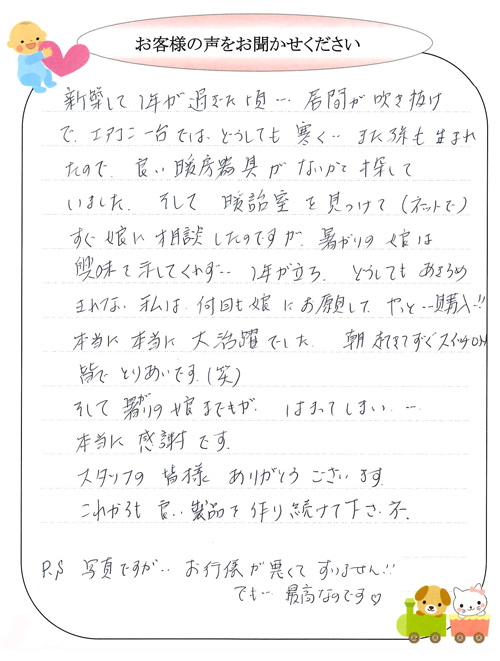 お客様の声をお聞かせください
新築して1年が過ぎた頃… 居間が吹き抜け
で、エアコン一台では、どうしても 寒く… また孫も生まれ
たので、良い暖房器具がないかと探して
いました。そして 暖話室を見つけて(ネットで)
すぐ娘に相談したのですが、暑がりの娘は
興味を示してくれず… 1年が立ち、どうしてもあきらめ
きれない私は、何回も娘にお願して、やっと…購入!!
本当に本当に大活躍でした。朝起きてすぐスイッチON
皆でとりあいです。(笑)
そして暑がりの娘までもが、はまってしまい…
本当に感謝です。
スタッフの皆様 ありがとうございます。
これからも良い製品を作り続けて下さいネ。
P.S 写真ですが… お行儀が悪くてすいません!!
でも… 最高なのです♡